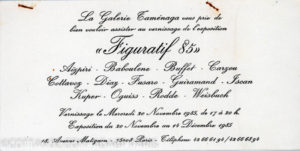 La Galerie Taménaga vous prie de
bien vouloir assister au vernissage de l'exposition
«Figuratif 85»
Aïzpiri - Baboulène - Buffet - Carzou
Cottavoz - Diaz - Fusaro - Guiramand - Jsoan
Kuper - Oguiss - Rodde - Weisbuch
Vernissage le Mercredi 20 Novembre 1985, de 17 à 20 h.
Exposition du 20 Novembre au 14 Décembre 1985
18, Avenue Matignon - 75008 Paris - Téléphone